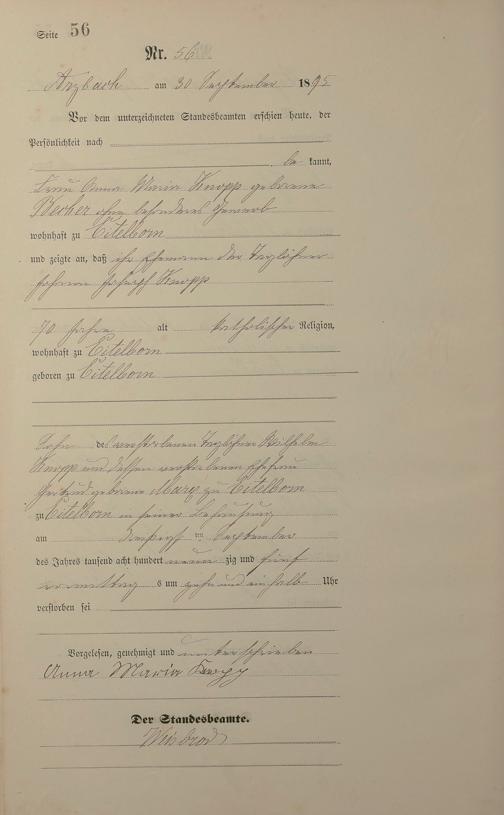 Seite 56
Nr. 56
Arzbach am 30 September 1895
Vor dem unterzeichneten Standesbeamten erschien heute, der
Persönlichkeit nach
be kannt,
Frau Anna Maria Knopp geborene
Becher ohne besonderes Gewerb
wohnhaft zu Eitelborn
und zeigte an, daß ihr Ehemann der Taglöhner
Joseph Knopp
70 Jahre alt katholischer Religion,
wohnhaft zu Eitelborn
geboren zu Eitelborn
Sohn des verstorbenen Taglöhner Wilhelm
Knopp und dessen verstorbenen Ehefrau
geborene zu Eitelborn
zu Eitelborn in seiner Behausung
am ten September
des Jahres tausend acht hundert neun zig und fünf
vormittags um zehn und ein halb Uhr
verstorben sei
Vorgelesen, genehmigt und unterschrieben
Anna Maria Knopp
Der Standesbeamte.